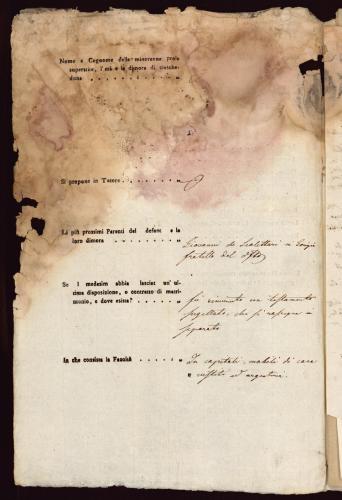 Nome e Cognome della minorenne prole
superstite, l'età e la dimora di ciascheduno
Si propone in Tutore
Li più prossimi Parenti del defunt e la
loro dimora
Giovanni de Scolettari e Luigi
fratello del
Se l medesim abbia lasciat un'ultima
disposizione, o contratto di matrimonio,
e dove esista?
fù rinvenuto un testamento
sigillato, che si rassegna
separato
In che consista la Facoltà
In capitali, mobili di casa
e argenteria.